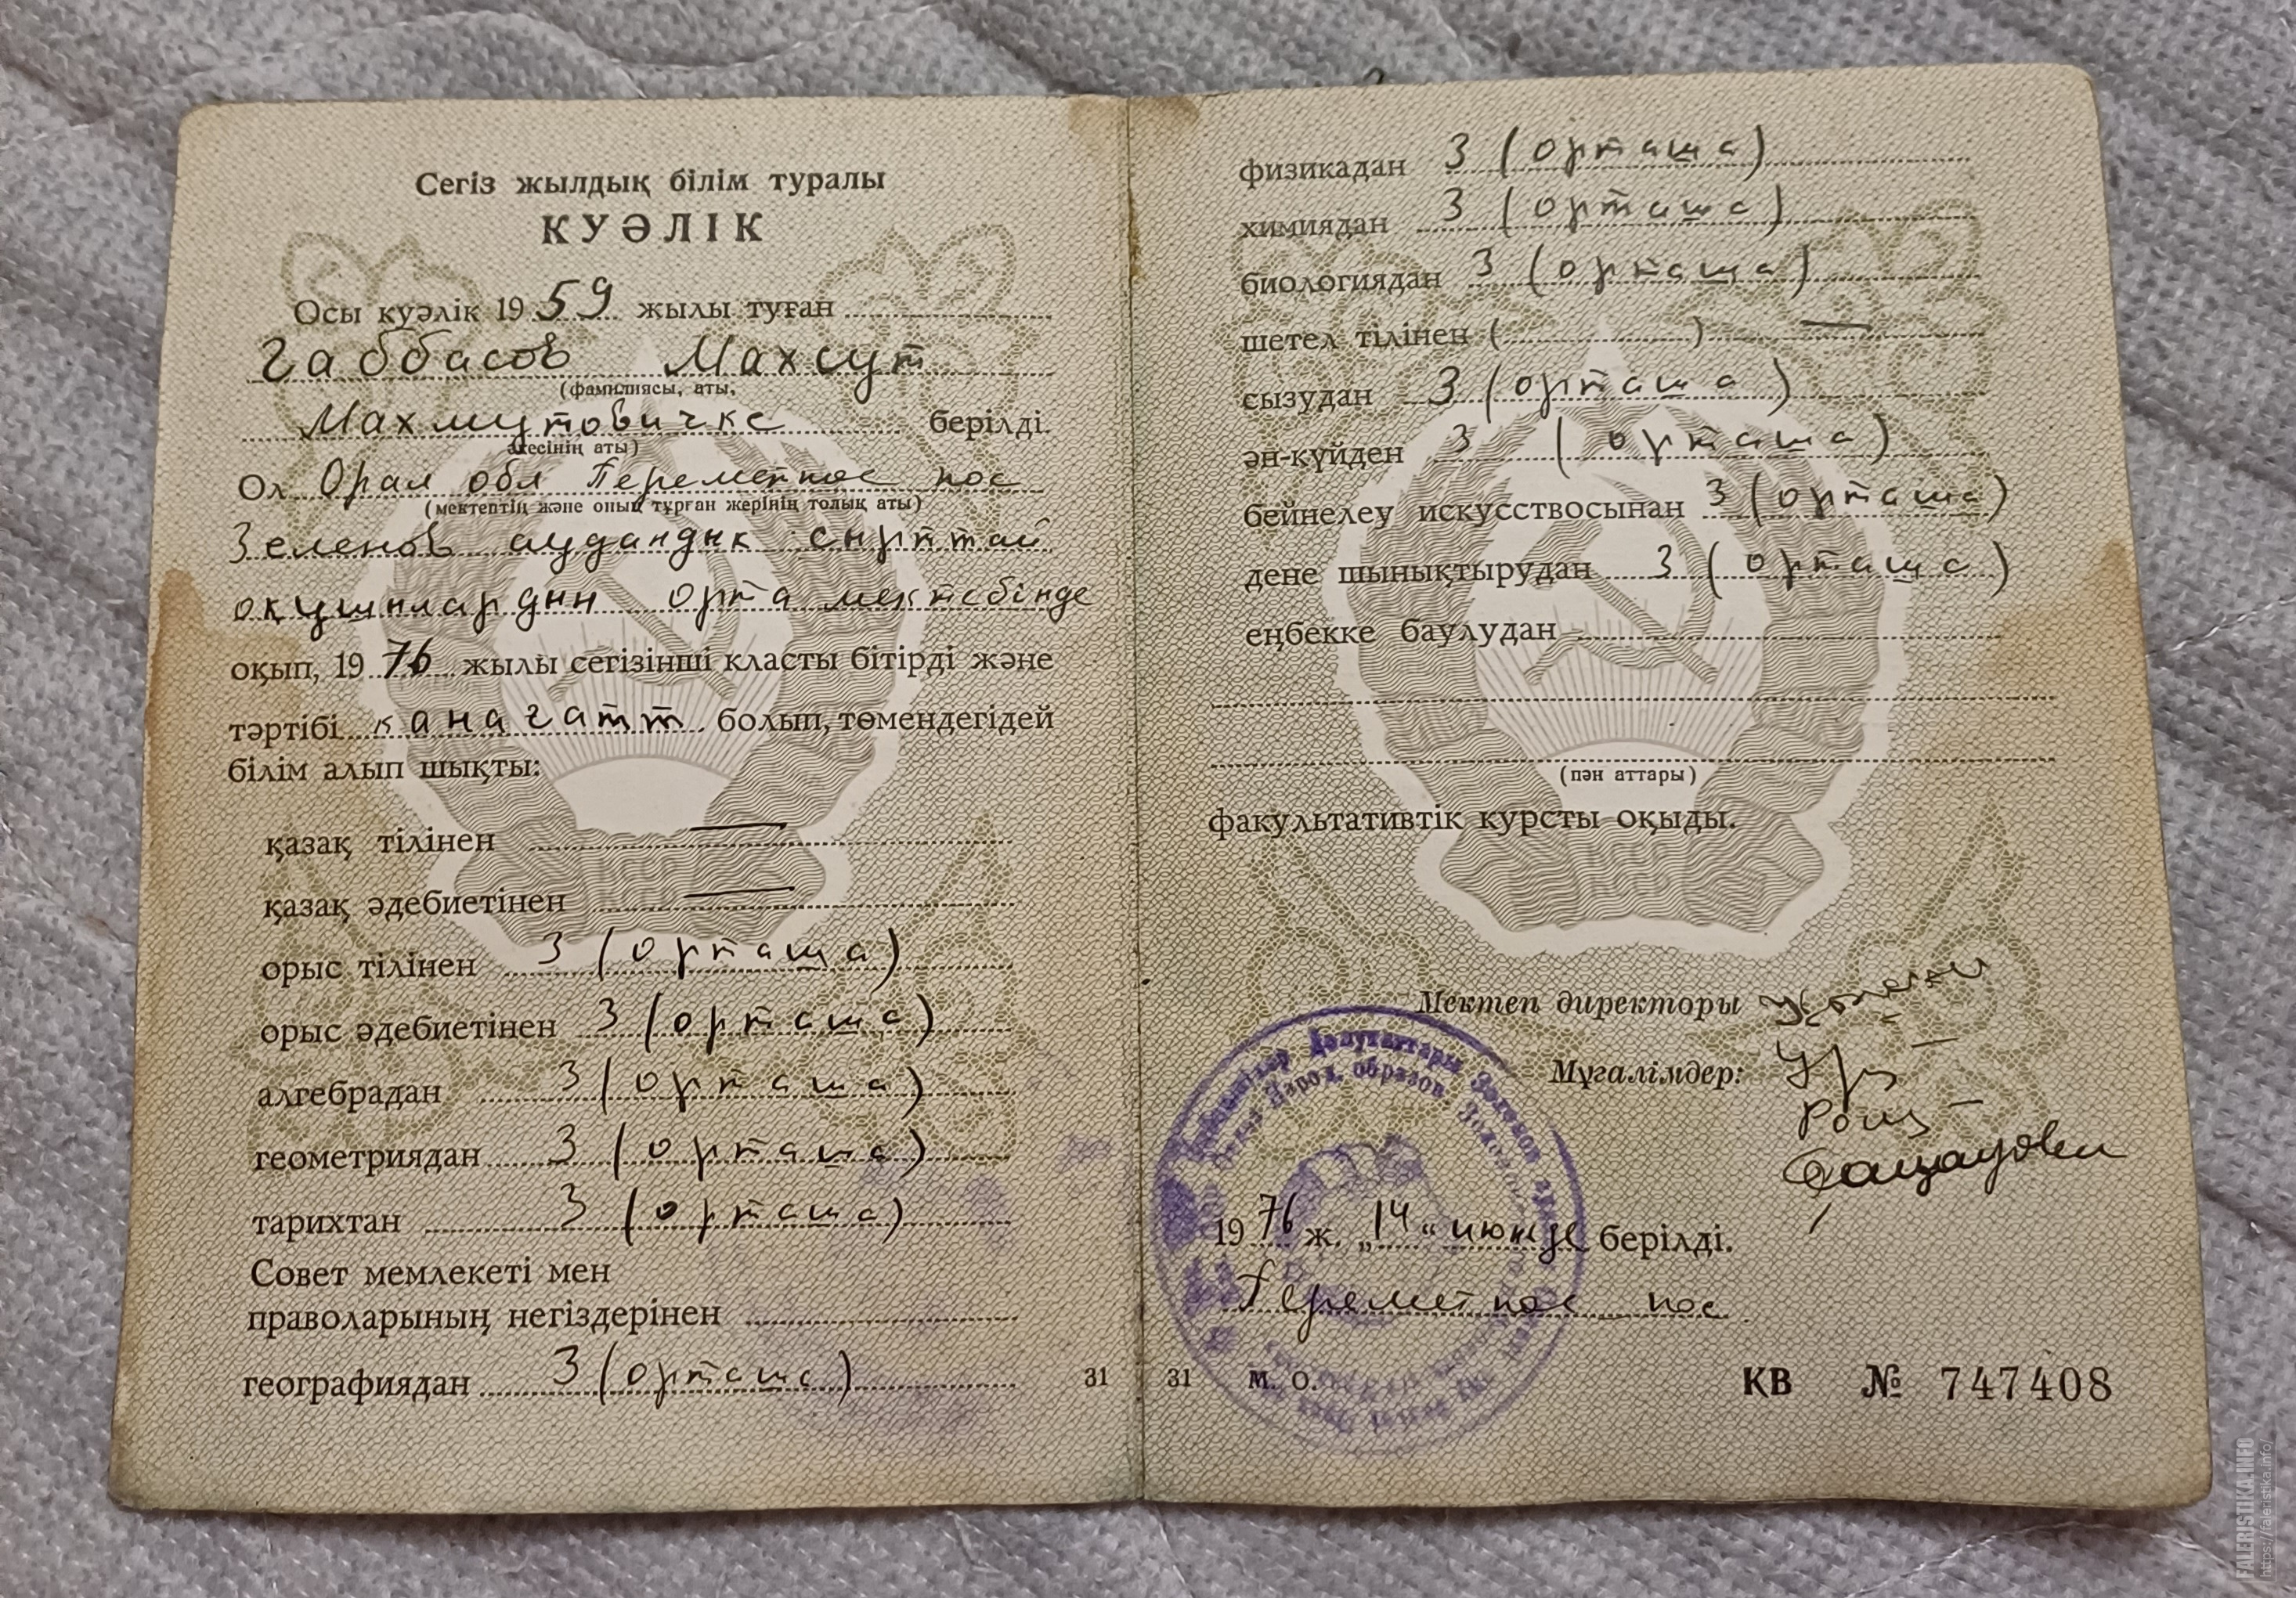 Сегіз жылдық білім туралы
КУӘЛІК
Осы куәлік 1959 жылы туған
Габбасов Махсут
(фамилиясы, аты,
Махмутовичке берілді.
әкесінің аты)
Ол Орал обл Переметное пос
(мектептің және оның тұрған жерінің толық аты)
Зеленов аудандык сырттай
оқушылардың орта мектебінде
оқып, 1976 жылы сегізінші класты бітірді және
тәртібі канагатт болып, төмендегідей
білім алып шықты:
қазақ тілінен —
қазақ әдебиетінен —
орыс тілінен 3 (орташа)
орыс әдебиетінен 3 (орташа)
алгебрадан 3 (орташа)
геометриядан 3 (орташа)
тарихтан 3 (орташа)
Совет мемлекеті мен
праволарының негіздерінен
географиядан 3 (орташа)
31
физикадан 3 (орташа)
химиядан 3 (орташа)
биологиядан 3 (орташа)
шетел тілінен ( ) —
сызудан 3 (орташа)
ән-күйден 3 (орташа)
бейнелеу искусствосынан 3 (орташа)
дене шынықтырудан 3 (орташа)
еңбекке баулудан
(пән аттары)
факультативтік курсты оқыды.
Мектеп директоры
Мұғалімдер:
Депутаттары Зеленов
Народ. образов
1976 ж. „14“ июнде берілді.
Переметное пос
31 М. О.
КВ № 747408
FALERISTIKA.INFO
https://faleristika.info/